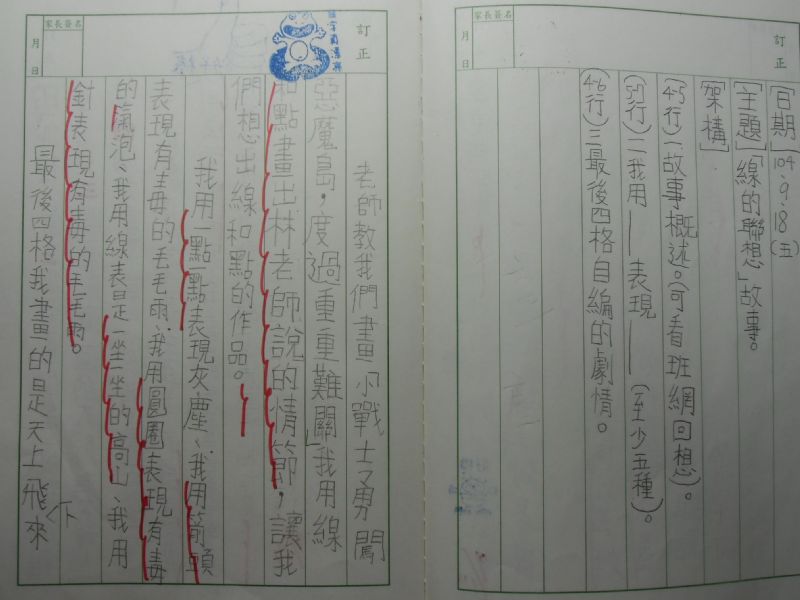 訂正
家長簽名
月 日
[日期]104.9.18(五)
[主題]「線的聯想」故事。
[架構]
(4-5行)一故事概述。(可看班網回想)。
(5-7行)二我用——表現——(至少五種)。
(4-6行)三最後四格自編的劇情。
訂正
家長簽名
月 日
老師教我們畫「小戰士勇闖
惡魔島,度過重重難關」我用線
和點畫出林老師說的情節,讓我
們想出線和點的作品。
我用一點一點表現灰塵、我用箭頭
表現有毒的毛毛雨、我用圓圈表現有毒
的氣泡、我用線表是一坐一坐的高山、我用
針表現有毒的毛毛雨。
最後四格我畫的是天上飛來
下